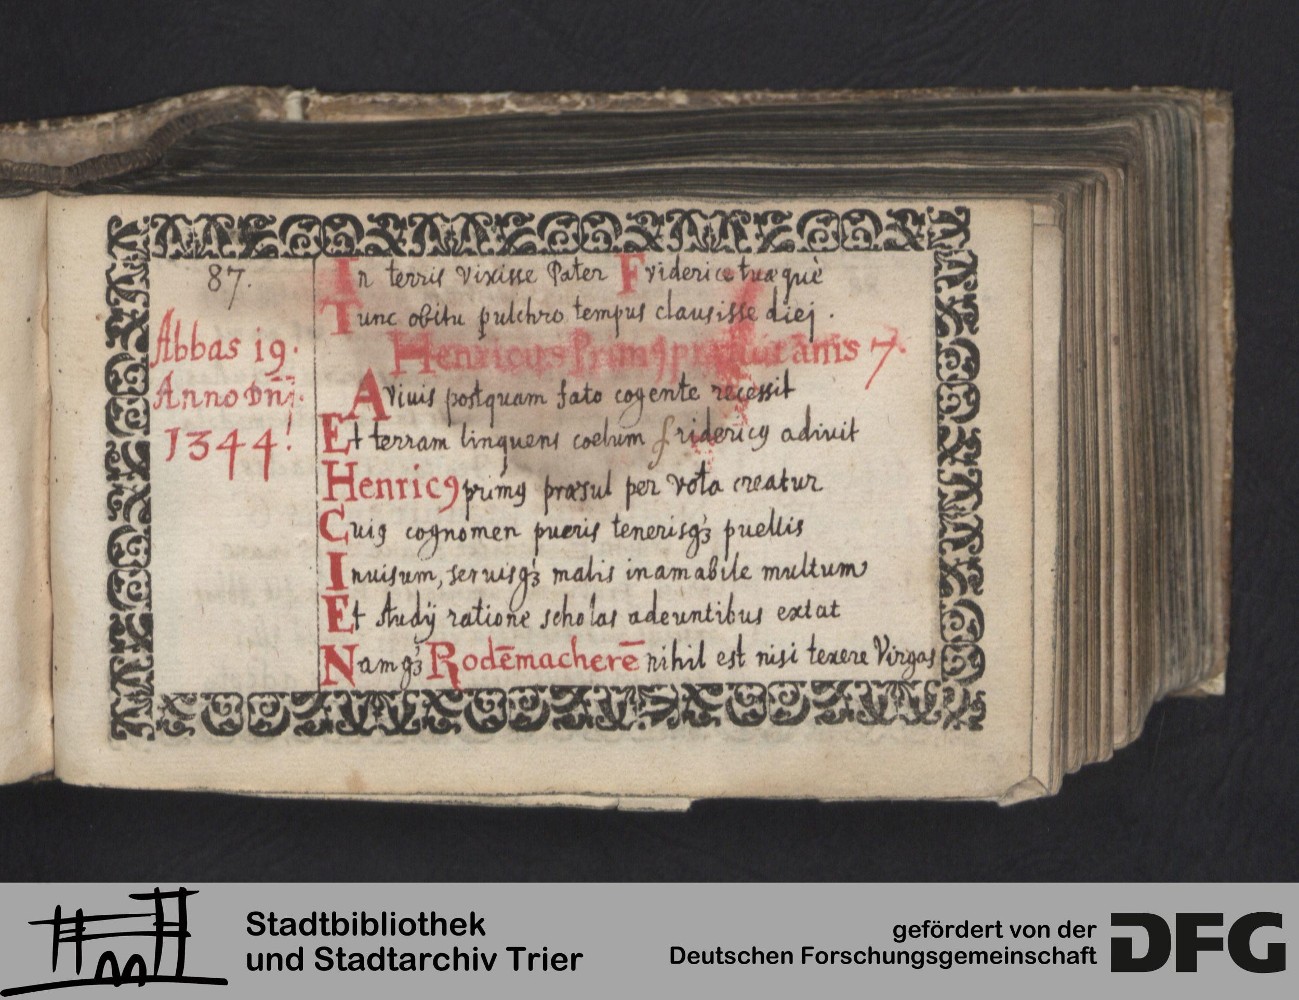 87.
Abbas 19.
Anno Dn̄j.
1344!
In terris vixisse Pater Friderice tuæquè
Tunc obitu pulchro tempus clausisse diej.
Henricus Primꝰ annis 7.
A viuis postquam fato cogente recessit
Et terram linquens coelum fridericꝰ adiuit
Henricꝰ primꝰ præsul per vota creatur
Cuiꝰ cognomen pueris tenerisqꝫ puellis
Inuisum, seruisqꝫ malis inamabile multum
Et studij ratione scholas adeuntibus extat
Namqꝫ Rodēmacherē nihil est nisi texere Virgas
Stadtbibliothek
und Stadtarchiv Trier
gefördert von der
Deutschen Forschungsgemeinschaft
DFG